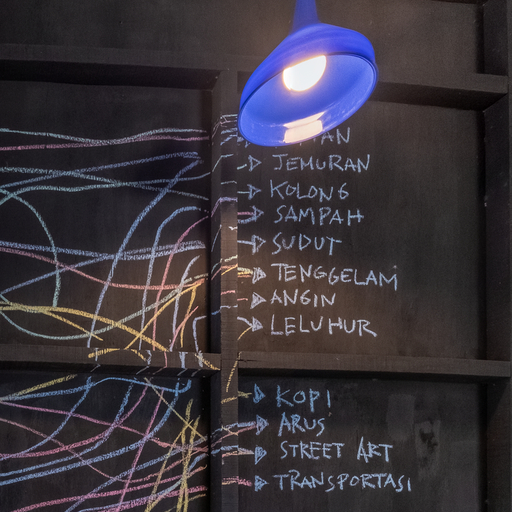 JEMURAN
KOLONG
SAMPAH
SUDUT
TENGGELAM
ANGIN
LELUHUR
KOPI
ARUS
STREET ART
TRANSPORTASI